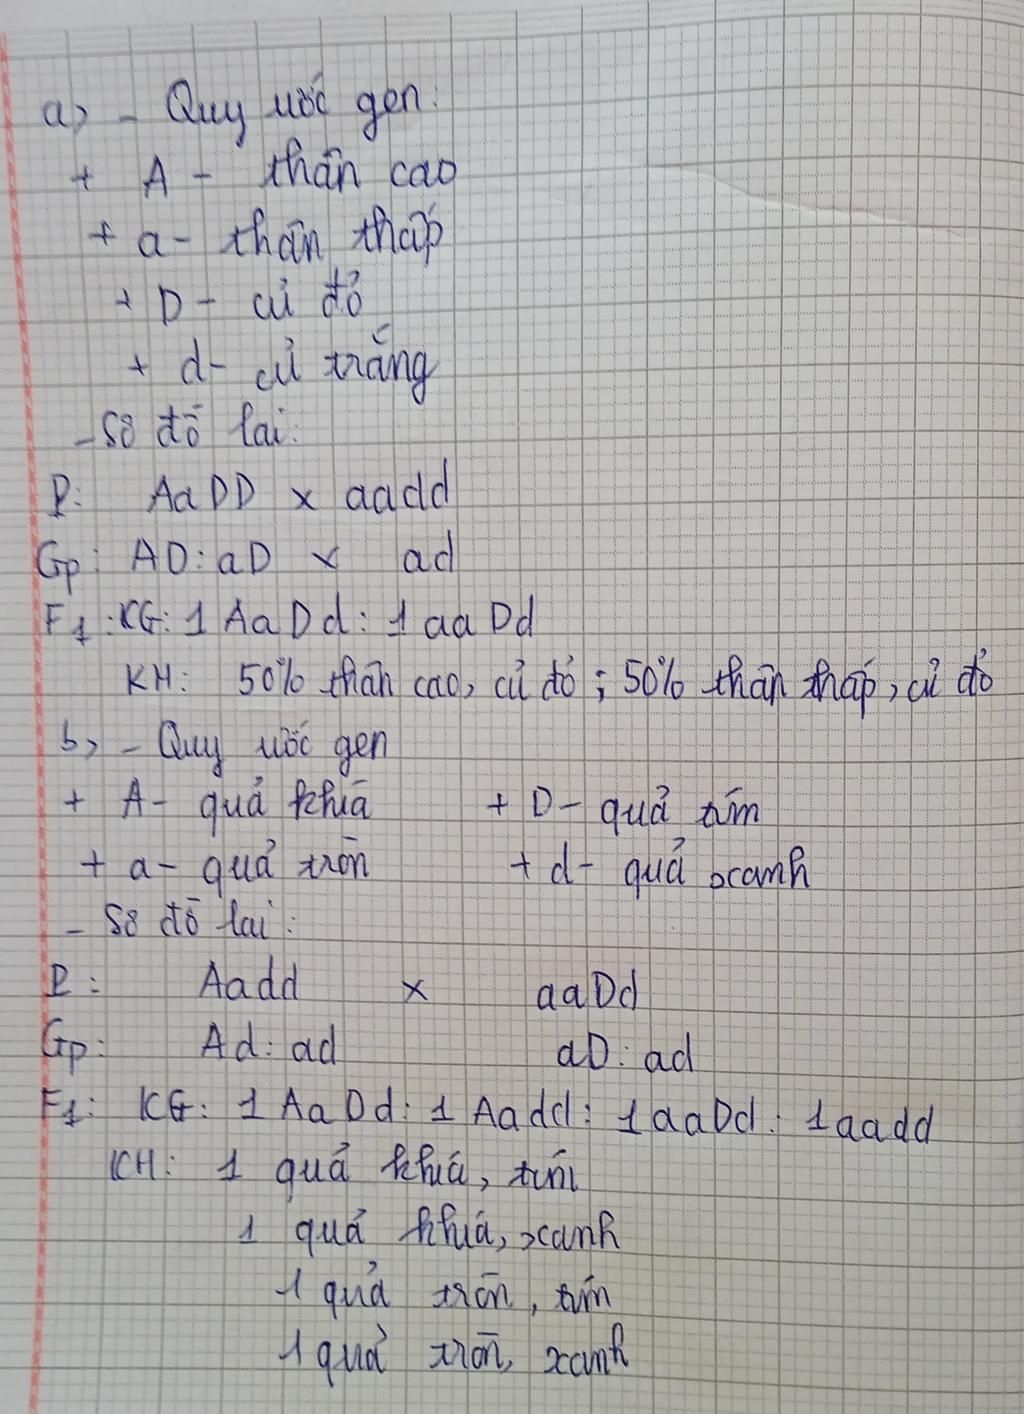 a, - Quy ước gen:
+ A - thân cao
+ a - thân thấp
+ D - củ đỏ
+ d - củ trắng
- Sơ đồ lai:
P: AaDD x aadd
Gp: AD : aD x ad
F1: KG: 1 AaDd : 1 aaDd
KH: 50% thân cao, củ đỏ ; 50% thân thấp, củ đỏ
b, - Quy ước gen
+ A - quả khía + D - quả tím
+ a - quả tròn + d - quả xanh
- Sơ đồ lai:
P: Aadd x aaDd
Gp: Ad : ad aD : ad
F1: KG: 1 AaDd : 1 Aadd : 1 aaDd : 1 aadd
KH: 1 quả khía, tím
1 quả khía, xanh
1 quả tròn, tím
1 quả tròn, xanh